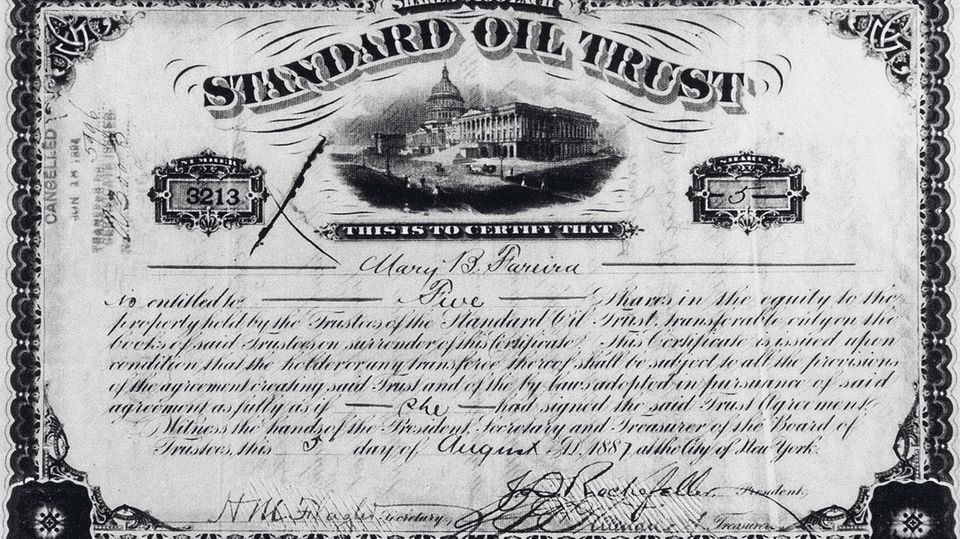 STANDARD OIL TRUST
NUMBER
3213
SHARES
5
CANCELLED
JUN 18 1894
THIS IS TO CERTIFY THAT
Mary B. Pareira
is entitled to Five Shares in the equity to the
property held by the Trustees of the Standard Oil Trust, transferable only on the
books of said Trustees on surrender of this Certificate. This Certificate is issued upon
condition that the holder or any transferee thereof shall be subject to all the provisions
of the agreement creating said Trust and of the by-laws adopted in pursuance of said
agreement as fully as if she had signed the said Trust Agreement.
Witness the hands of the President, Secretary and Treasurer of the Board of
Trustees, this day of August A.D. 1887 at the City of New York.
Rockefeller President,
Secretary
Treasurer